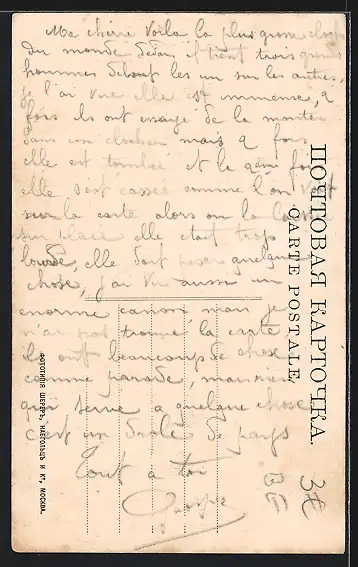 Ma chérie Voila la plus grosse cloche
du monde dedans il tient trois
hommes debout les un sur les autres,
je l'ai vue elle est immense, 9
fois ils ont essayé de la monter
dans un clocher mais 9 fois
elle est tombée et la 9ème fois
elle s'est cassée comme l'on voit
sur la carte alors on la
sur place elle etait trop
lourde, elle doit peser quelque
chose, j'ai vu aussi un
enorme canon mais je
n'ai pas trouvé la carte
ils ont beaucoup de chose
comme parade, mais rien
qui serve a quelque chose
c'est un drôle de pays
Tout a toi
ПОЧТОВАЯ КАРТОЧКА.
CARTE POSTALE.
ФОТОТИПІЯ ШЕРЕРЪ, НАБГОЛЬЦЪ И Кº, МОСКВА.